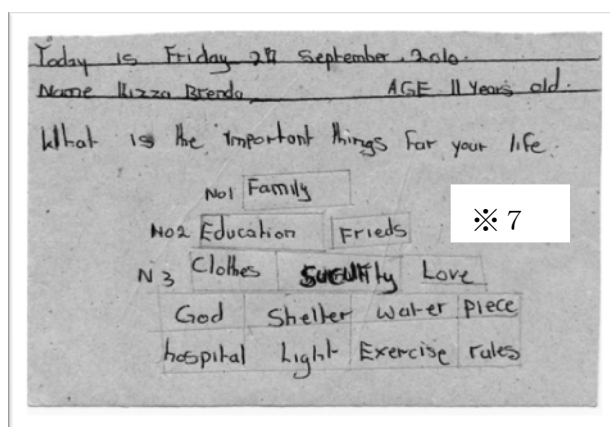 Today is Friday 24 September. 2010.
Name Kizza Brenda AGE 11 Years old.
What is the important things for your life.
No1 Family
No2 Education Frieds
※ 7
N 3 Clothes Love
God Shelter water piece
hospital Light Exercise rules